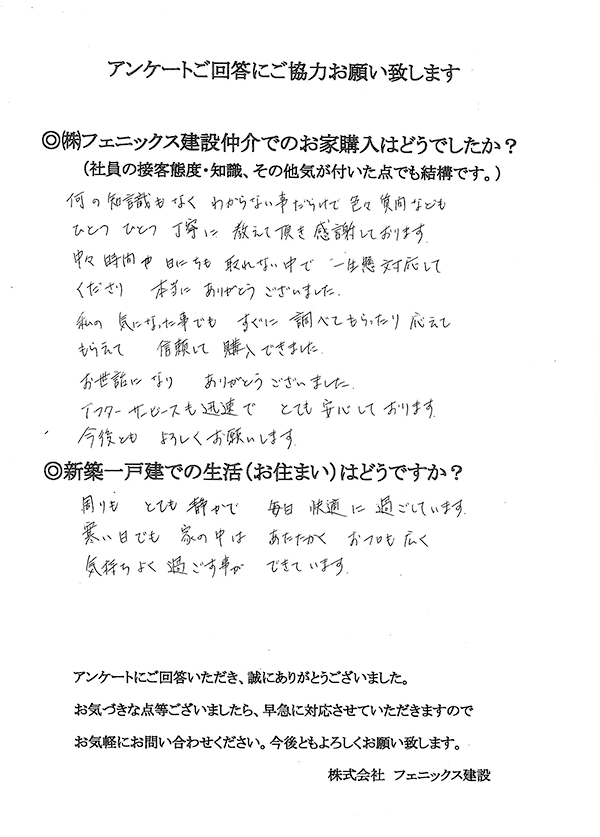 アンケートご回答にご協力お願い致します
◎㈱フェニックス建設仲介でのお家購入はどうでしたか？
（社員の接客態度・知識、その他気が付いた点でも結構です。）
何の知識もなく わからない事だらけで 色々 質問なども
ひとつ ひとつ 丁寧に 教えて頂き 感謝しております。
中々 時間や 日にちも 取れない中で 一生懸対応して
くださり 本当に ありがとう ございました。
私の 気になった事でも すぐに 調べてもらったり 応えて
もらえて 信頼して 購入できました。
お世話になり ありがとう ございました。
アフターサービスも迅速で とても 安心しております。
今後とも よろしくお願いします。
◎新築一戸建での生活（お住まい）はどうですか？
周りも とても 静かで 毎日 快適に 過ごしています。
寒い日でも 家の中は あたたかく おフロも広く
気持ちよく 過ごす事が できています。
アンケートにご回答いただき、誠にありがとうございました。
お気づきな点等ございましたら、早急に対応させていただきますので
お気軽にお問い合わせください。今後ともよろしくお願い致します。
株式会社 フェニックス建設